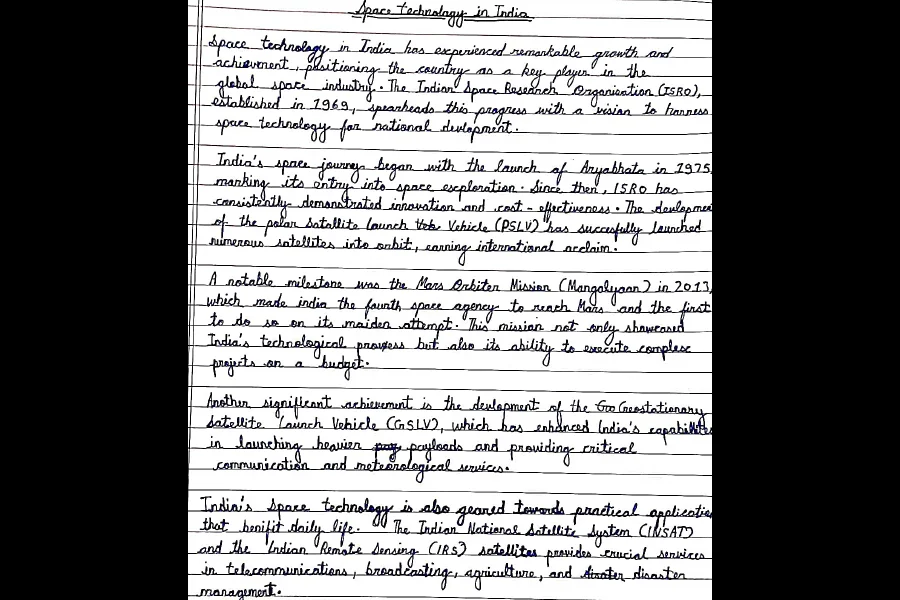 Space technology in India
Space technology in India has experienced remarkable growth and
achievement, positioning the country as a key player in the
global space industry. The Indian Space Research Organisation (ISRO),
established in 1969, spearheads this progress with a vision to harness
space technology for national devlopment.
India's space journey began with the launch of Aryabhata in 1975,
marking its entry into space exploration. Since then, ISRO has
consistently demonstrated innovation and cost-effectiveness. The devlopmen
of the polar Satellite Launch Vehicle (PSLV) has succesfully launched
numerous satellites into orbit, earning international acclaim.
A notable milestone was the Mars Orbiter Mission (Mangalyaan) in 2013,
which made india the fourth space agency to reach Mars and the first
to do so on its maiden attempt. This mission not only showcased
India's technological prowess but also its ability to execute complex
projects on a budget.
Another significant achievement is the devlopment of the Geostationary
Satellite Launch Vehicle (GSLV), which has enhanced India's capabilities
in launching heavier payloads and providing critical
communication and meteorological services.
India's Space technology is also geared towards practical application
that benifit daily life. The Indian National Satellite System (INSAT)
and the Indian Remote Sensing (IRS) satellites provides crucial services
in telecommunications, broadcasting, agriculture, and disaster
management.